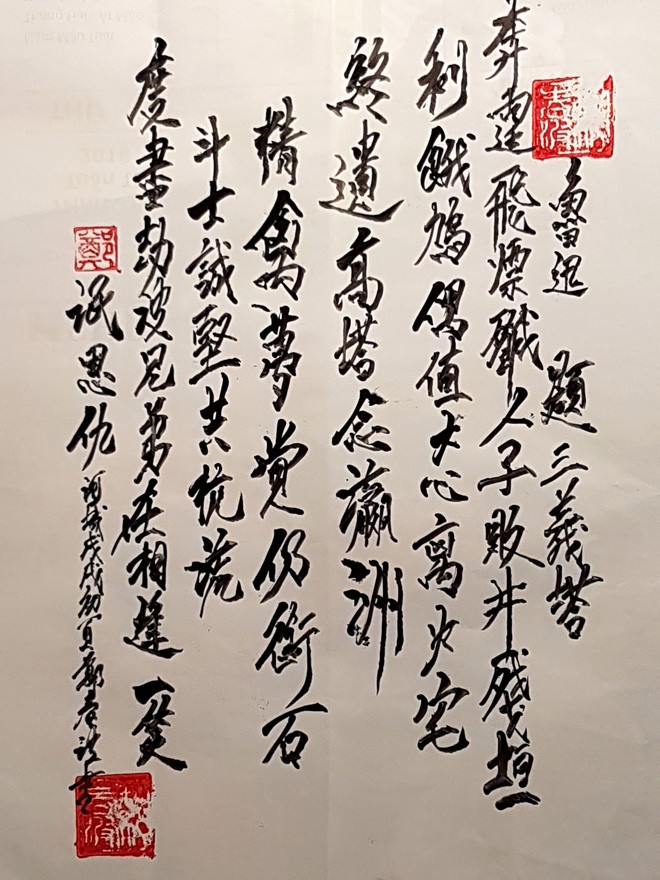 魯迅 題三義塔
奔霆飛熛殲人子敗井殘垣
剩餓鳩偶值大心离火宅
終遺高塔念瀛洲
精禽夢覺仍銜石
斗士誠堅共抗流
度盡劫波兄弟在相逢一笑
泯恩仇 河城戊戌初夏鄭春